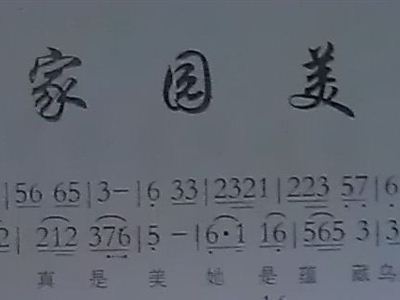 家园美
|56 65|3-|6 33|2321|223 57|6
2|212 376|5 -|6·1 16|565 3|3
真是美她是蕴藏乌